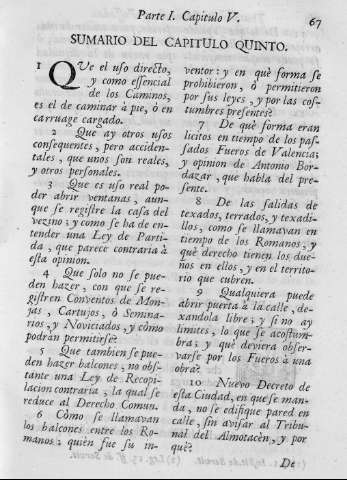 Parte I. Capitulo V. 67
SUMARIO DEL CAPITULO QUINTO.
1 QVe el uso directo,
y como essencial
de los Caminos,
es el de caminar à pie, ò en
carruage cargado.
2 Que ay otros usos
consequentes, pero acciden-
tales, que unos son reales,
y otros personales.
3 Que es uso real po-
der abrir ventanas, aun-
que se registre la casa del
vezino; y como se ha de en-
tender una Ley de Parti-
da, que parece contraria à
esta opinion.
4 Que solo no se pue-
den hazer, con que se re-
gistren Conventos de Mon-
jas, Cartujos, ò Semina-
rios, y Noviciados, y còmo
podràn permitirse?
5 Que tambien se pue-
den hazer balcones, no obs-
tante una Ley de Recopi-
lacion contraria, la qual se
reduce al Derecho Comun.
6 Còmo se llamavan
los balcones entre los Ro-
manos: quièn fue su in-
ventor: y en què forma se
prohibieron, ò permitieron
por sus leyes, y por las cos-
tumbres presentes?
7 De què forma eran
licitos en tiempo de los pas-
sados Fueros de Valencia;
y opinion de Antonio Bor-
dazar, que habla del pre-
sente.
8 De las salidas de
texados, terrados, y texadi-
llos, como se llamavan en
tiempo de los Romanos, y
què derecho tienen los due-
ños en ellos, y en el territo-
rio que cubren.
9 Qualquiera puede
abrir puerta à la calle, de-
xandola libre; y si no ay
limites, lo que se acostum-
bra; y què deviera obser-
varse por los Fueros à una
obra?
10 Nuevo Decreto de
esta Ciudad, en que se man-
da, no se edifique pared en
calle, sin avisar al Tribu-
nal del Almotacèn, y por
què?
De